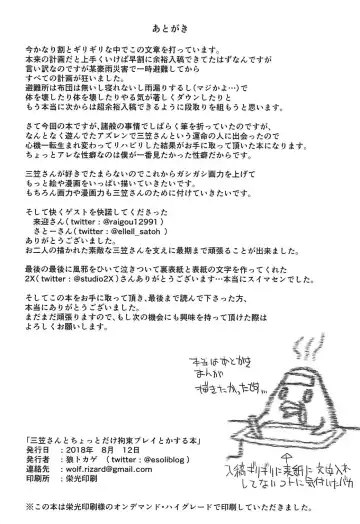 あとがき
今かなり割とギリギリな中でこの文章を打っています。
本来の計画だと上手くいけば早割に余裕入稿できてたはずなんですが
言い訳なのですが某豪雨災害で一時避難してから
すべての計画が狂いました。
避難所は布団は無いし寝れないし雨漏りするし（マジかよ…）で
体を壊したり体を壊したりやる気が著しくダウンしたりと
もう本当に次からは超余裕入稿できるように段取りを組もうと思います。
さて今回の本ですが、諸般の事情でしばらく筆を折っていたのですが、
なんとなく遊んでたアズレンで三笠さんという運命の人に出会ったので
心機一転生まれ変わってリハビリした結果がお手に取って頂いた本になります。
ちょっとアレな性癖なのは僕が一番見たかった性癖だからです。
三笠さんが好きでたまらないのでこれからガシガシ画力を上げて
もっと絵や漫画をいっぱい描いていきたいです。
もちろん画力や漫画力も三笠さんのために付けていきたいです。
そして快くゲストを快諾してくださった
来迎さん（twitter：@raigou12991 ）
さとーさん（ twitter：@elleil_satoh ）
ありがとうございました。
お二人の描かれた素敵な三笠さんを支えに最期まで頑張ることが出来ました。
最後の最後に風邪をひいて泣きついて裏表紙と表紙の文字を作ってくれた
2X（twitter：@studio2X ）さんありがとうございます…本当にスイマセンでした。
そしてこの本をお手に取って頂き、最後まで読んで下さった方、
本当にありがとうございました。
まだまだ頑張りますので、もし次の機会にも興味を持って頂けた際は
よろしくお願いします。
本当はあとがき
まんが
描きたかったです…
入稿ギリギリに表紙に文字入れ
してないコトに気付いたバカ
「三笠さんとちょっとだけ拘束プレイとかする本」
発行日：2018年　8月　12日
発行者：狼トカゲ　（ twitter：@esoliblog ）
連絡先：wolf.rizard@gmail.com
印刷所：栄光印刷
※この本は栄光印刷様のオンデマンド・ハイグレードで印刷していただきました。